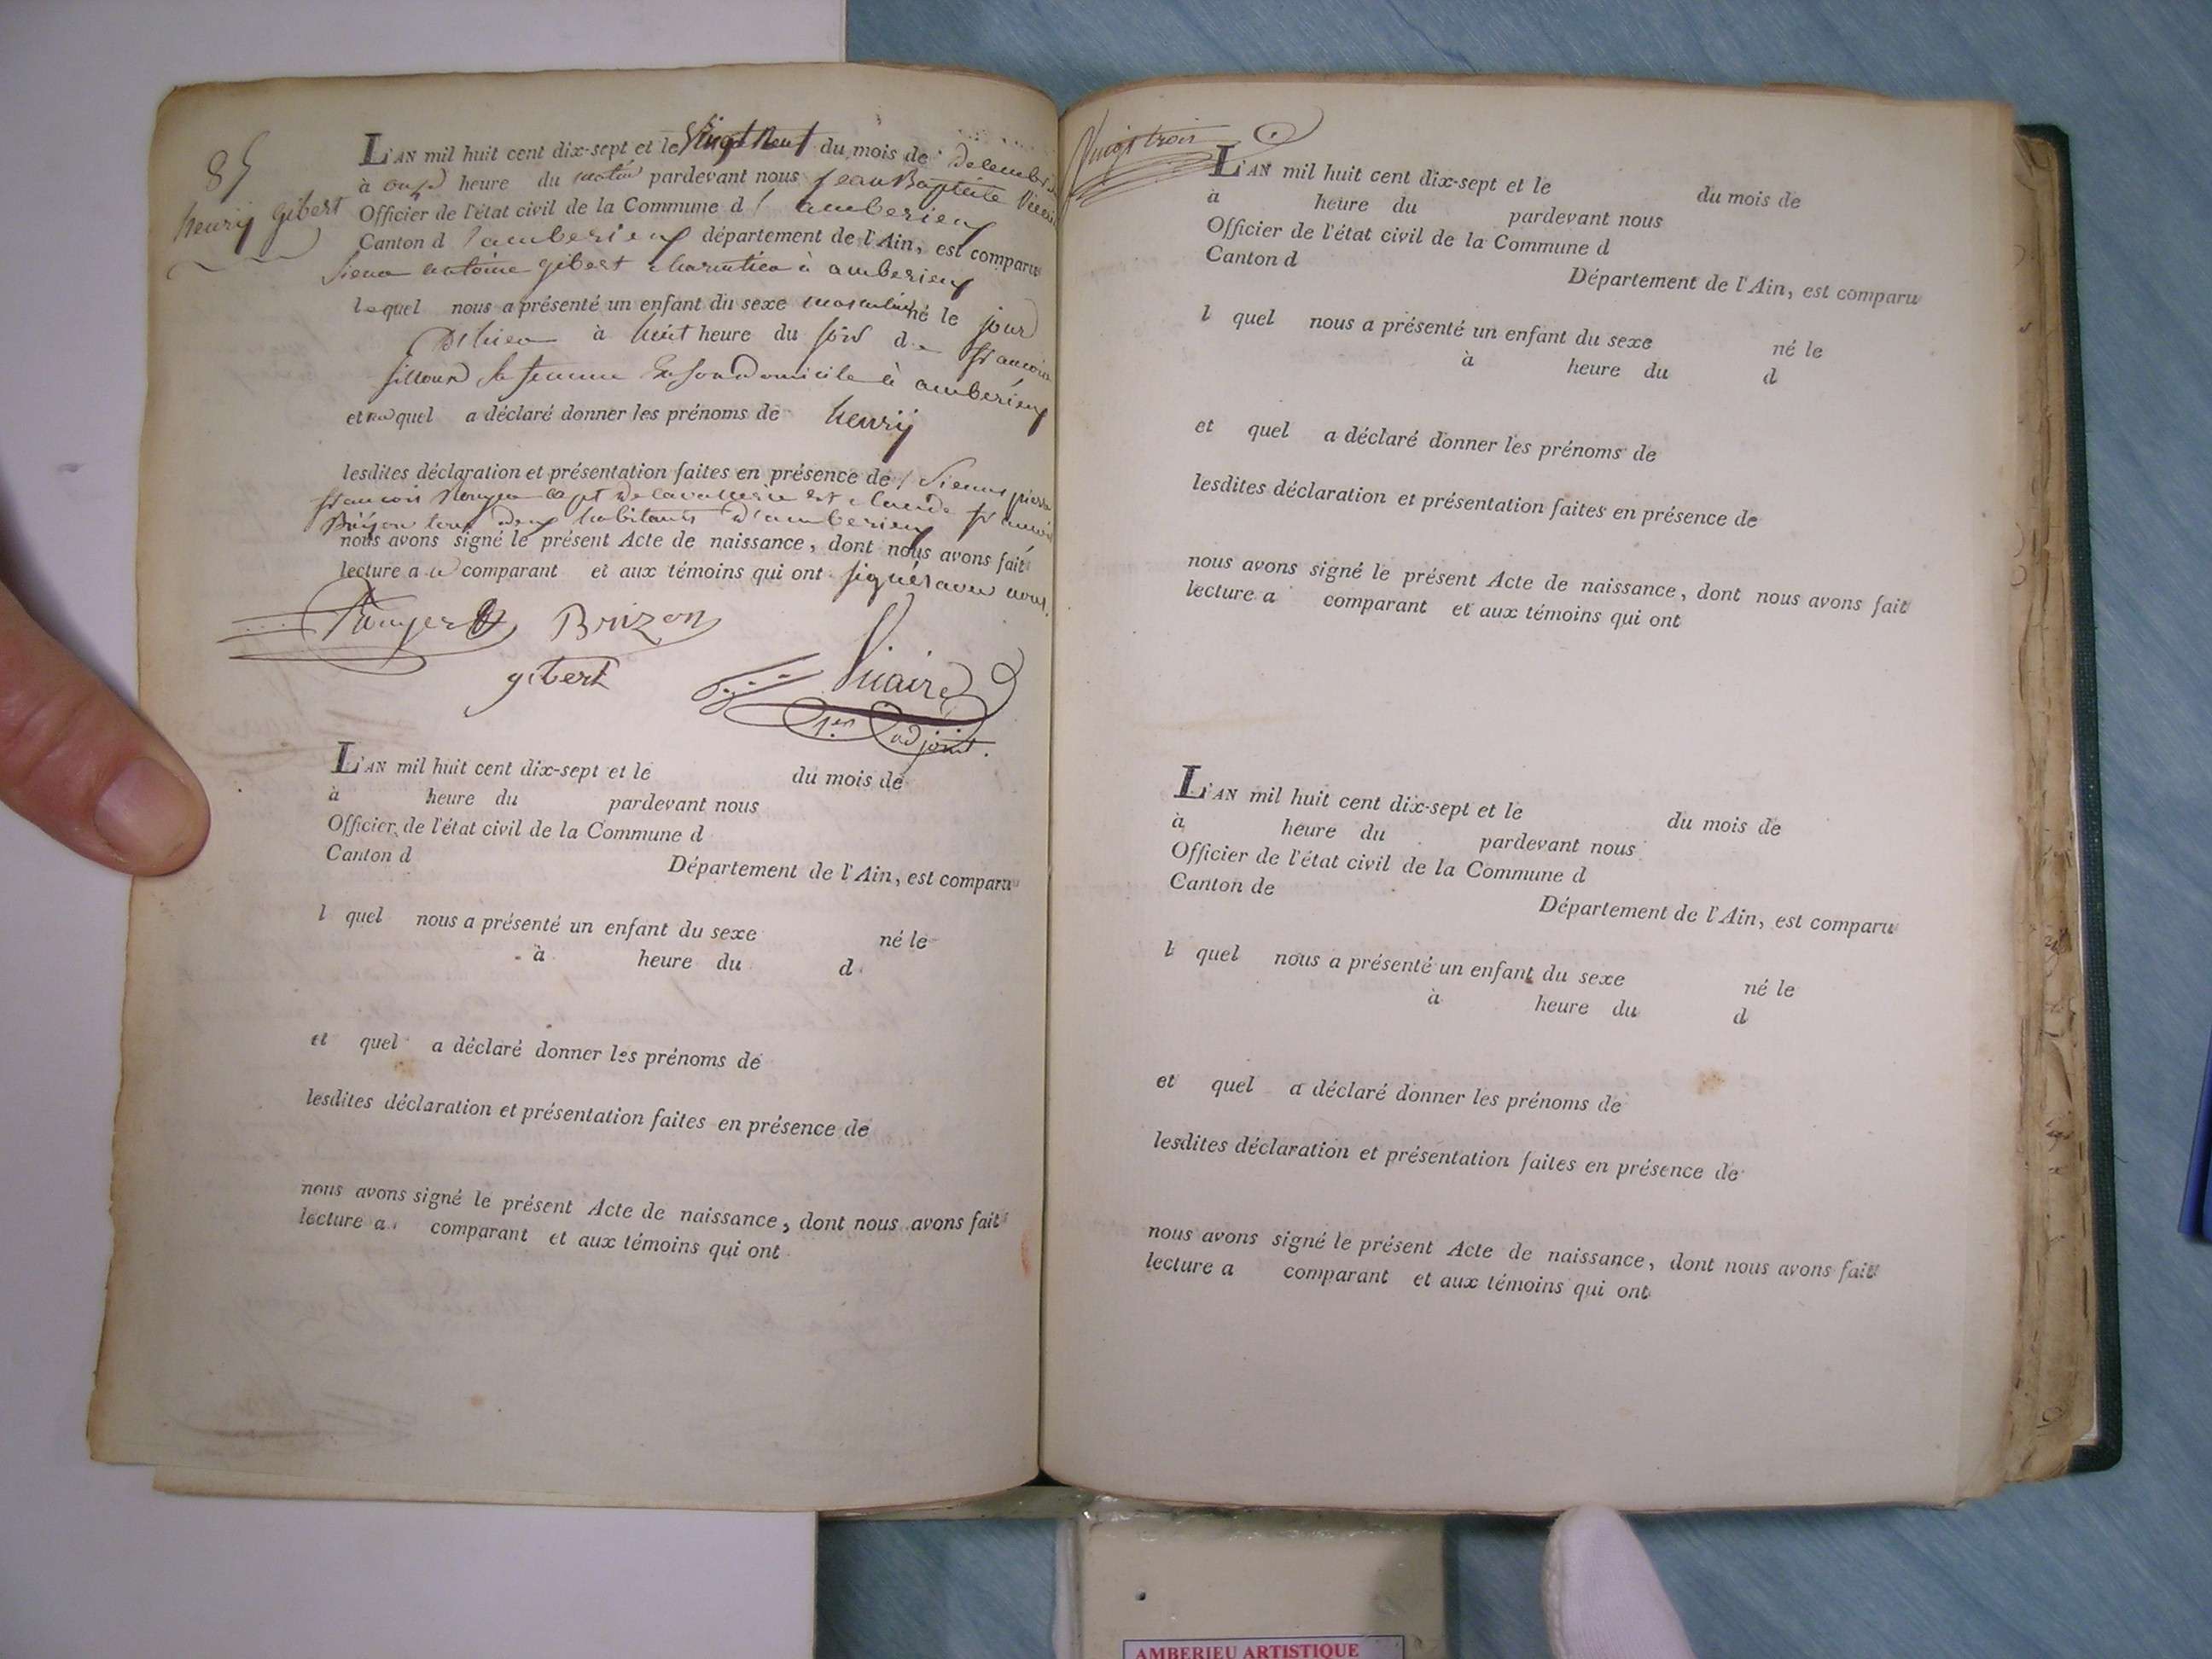 85
henry gibert
L'AN mil huit cent dix-sept et le Vingt neuf du mois de decembre
à onze heure du matin pardevant nous jean Baptiste Vicaire
Officier de l'état civil de la Commune d'amberieux
Canton d'amberieux département de l'Ain, est comparu
Sieur antoine gibert charcutier à amberieux
lequel nous a présenté un enfant du sexe masculin né le jour
d'hier à huit heure du soir de françoise
sa femme en son domicile à amberieux
et auquel a déclaré donner les prénoms de henry
lesdites déclaration et présentation faites en présence de Sieurs pierre
françois Rouyer capt de cavallerie et claude françois
Brizon tous deux habitants d'amberieux
nous avons signé le présent Acte de naissance, dont nous avons fait
lecture au comparant et aux témoins qui ont signés avec nous.
Rouyer Brizon
gibert Vicaire
1er adjoint.
L'AN mil huit cent dix-sept et le du mois de
à heure du pardevant nous
Officier de l'état civil de la Commune d
Canton d Département de l'Ain, est comparu
l quel nous a présenté un enfant du sexe né le
à heure du d
et quel a déclaré donner les prénoms de
lesdites déclaration et présentation faites en présence de
nous avons signé le présent Acte de naissance, dont nous avons fait
lecture a comparant et aux témoins qui ont
Vingt trois
L'AN mil huit cent dix-sept et le du mois de
à heure du pardevant nous
Officier de l'état civil de la Commune d
Canton d Département de l'Ain, est comparu
l quel nous a présenté un enfant du sexe né le
à heure du d
et quel a déclaré donner les prénoms de
lesdites déclaration et présentation faites en présence de
nous avons signé le présent Acte de naissance, dont nous avons fait
lecture a comparant et aux témoins qui ont
L'AN mil huit cent dix-sept et le du mois de
à heure du pardevant nous
Officier de l'état civil de la Commune d
Canton de Département de l'Ain, est comparu
l quel nous a présenté un enfant du sexe né le
à heure du d
et quel a déclaré donner les prénoms de
lesdites déclaration et présentation faites en présence de
nous avons signé le présent Acte de naissance, dont nous avons fait
lecture a comparant et aux témoins qui ont
AMBERIEU ARTISTIQUE